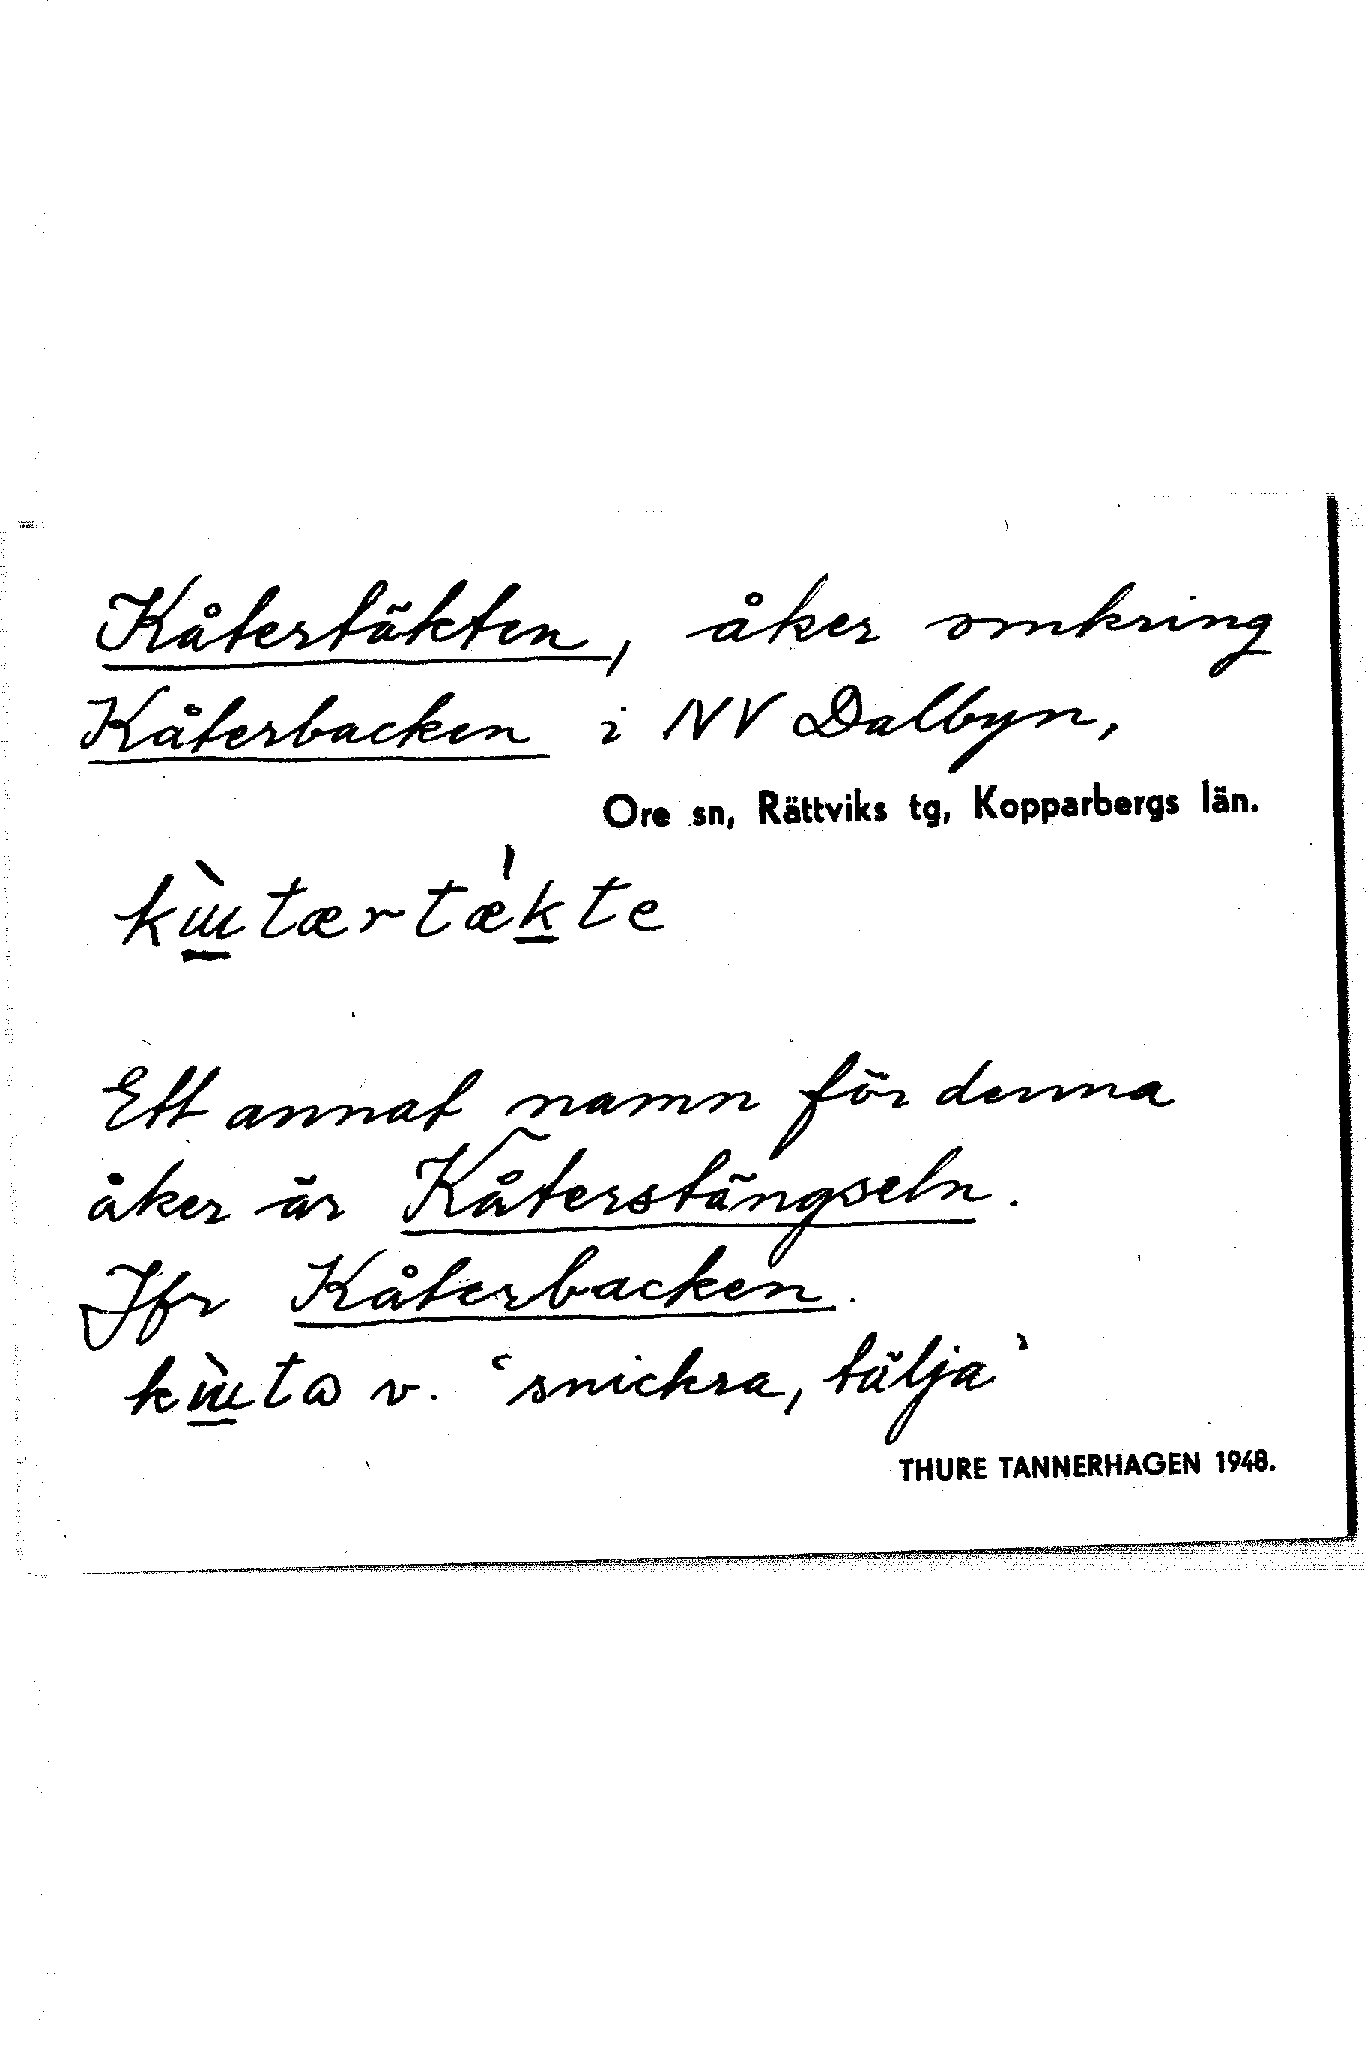 Kåtertäkten, åker omkring
Kåterbacken i NV Dalbyn,
Ore sn, Rättviks tg, Kopparbergs län.
Ett annat namn för denna
åker är Kåterstängseln.
Jfr Kåterbacken.
v. ‘snickra, tälja’
THURE TANNERHAGEN 1948.